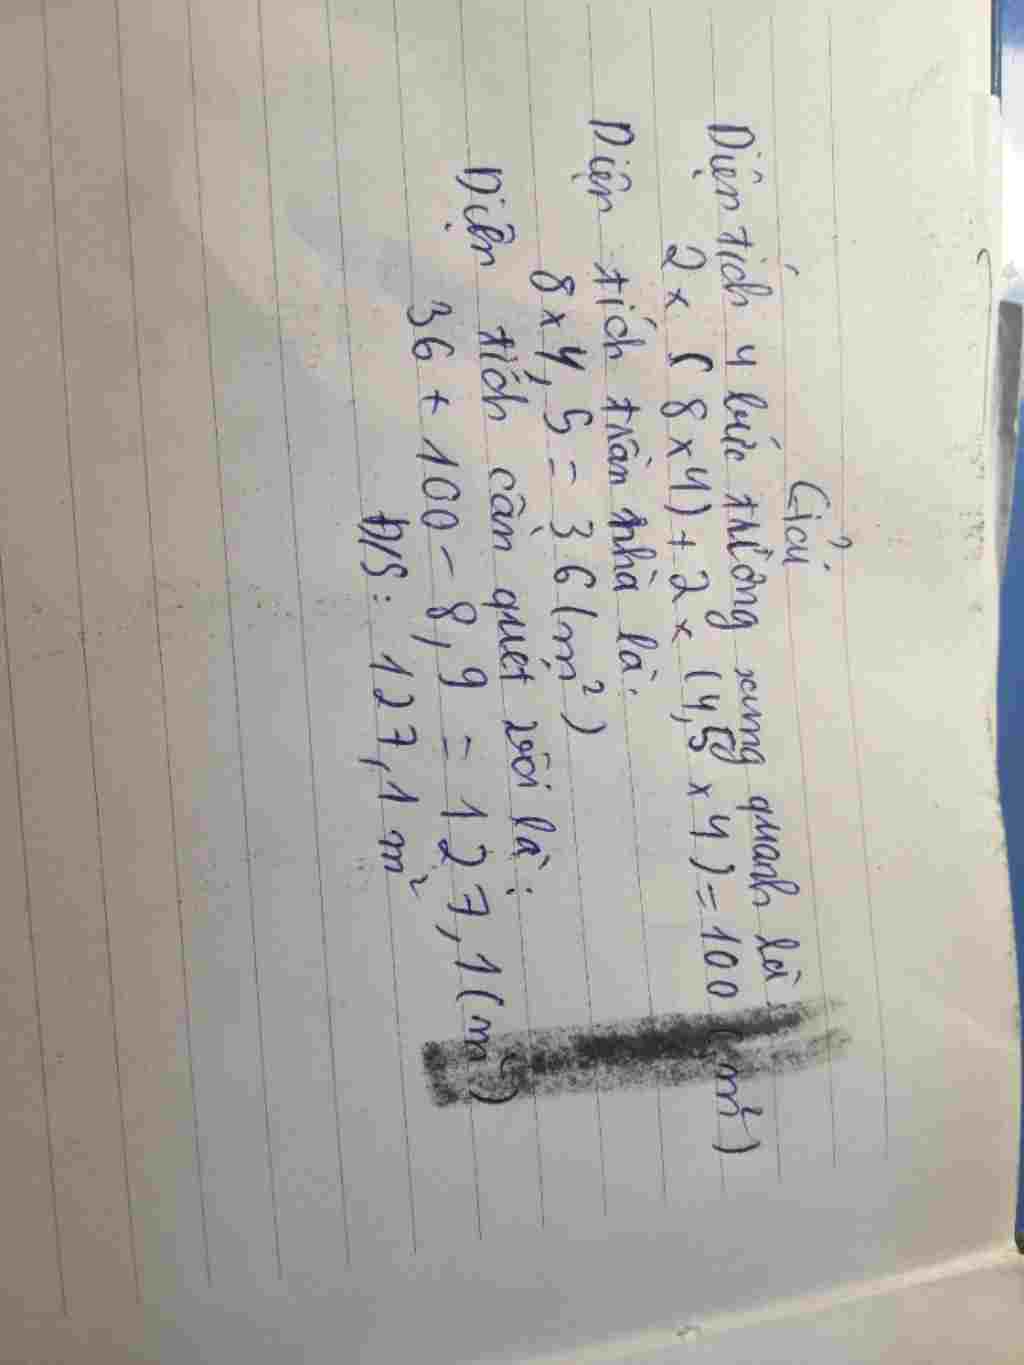 Giải
Diện tích 4 bức tường xung quanh là:
2 x (8 x 4) + 2 x (4,5 x 4) = 100 (m²)
Diện tích trần nhà là:
8 x 4,5 = 36 (m²)
Diện tích cần quét vôi là:
36 + 100 - 8,9 = 127,1 (m²)
Đ/S: 127,1 m²